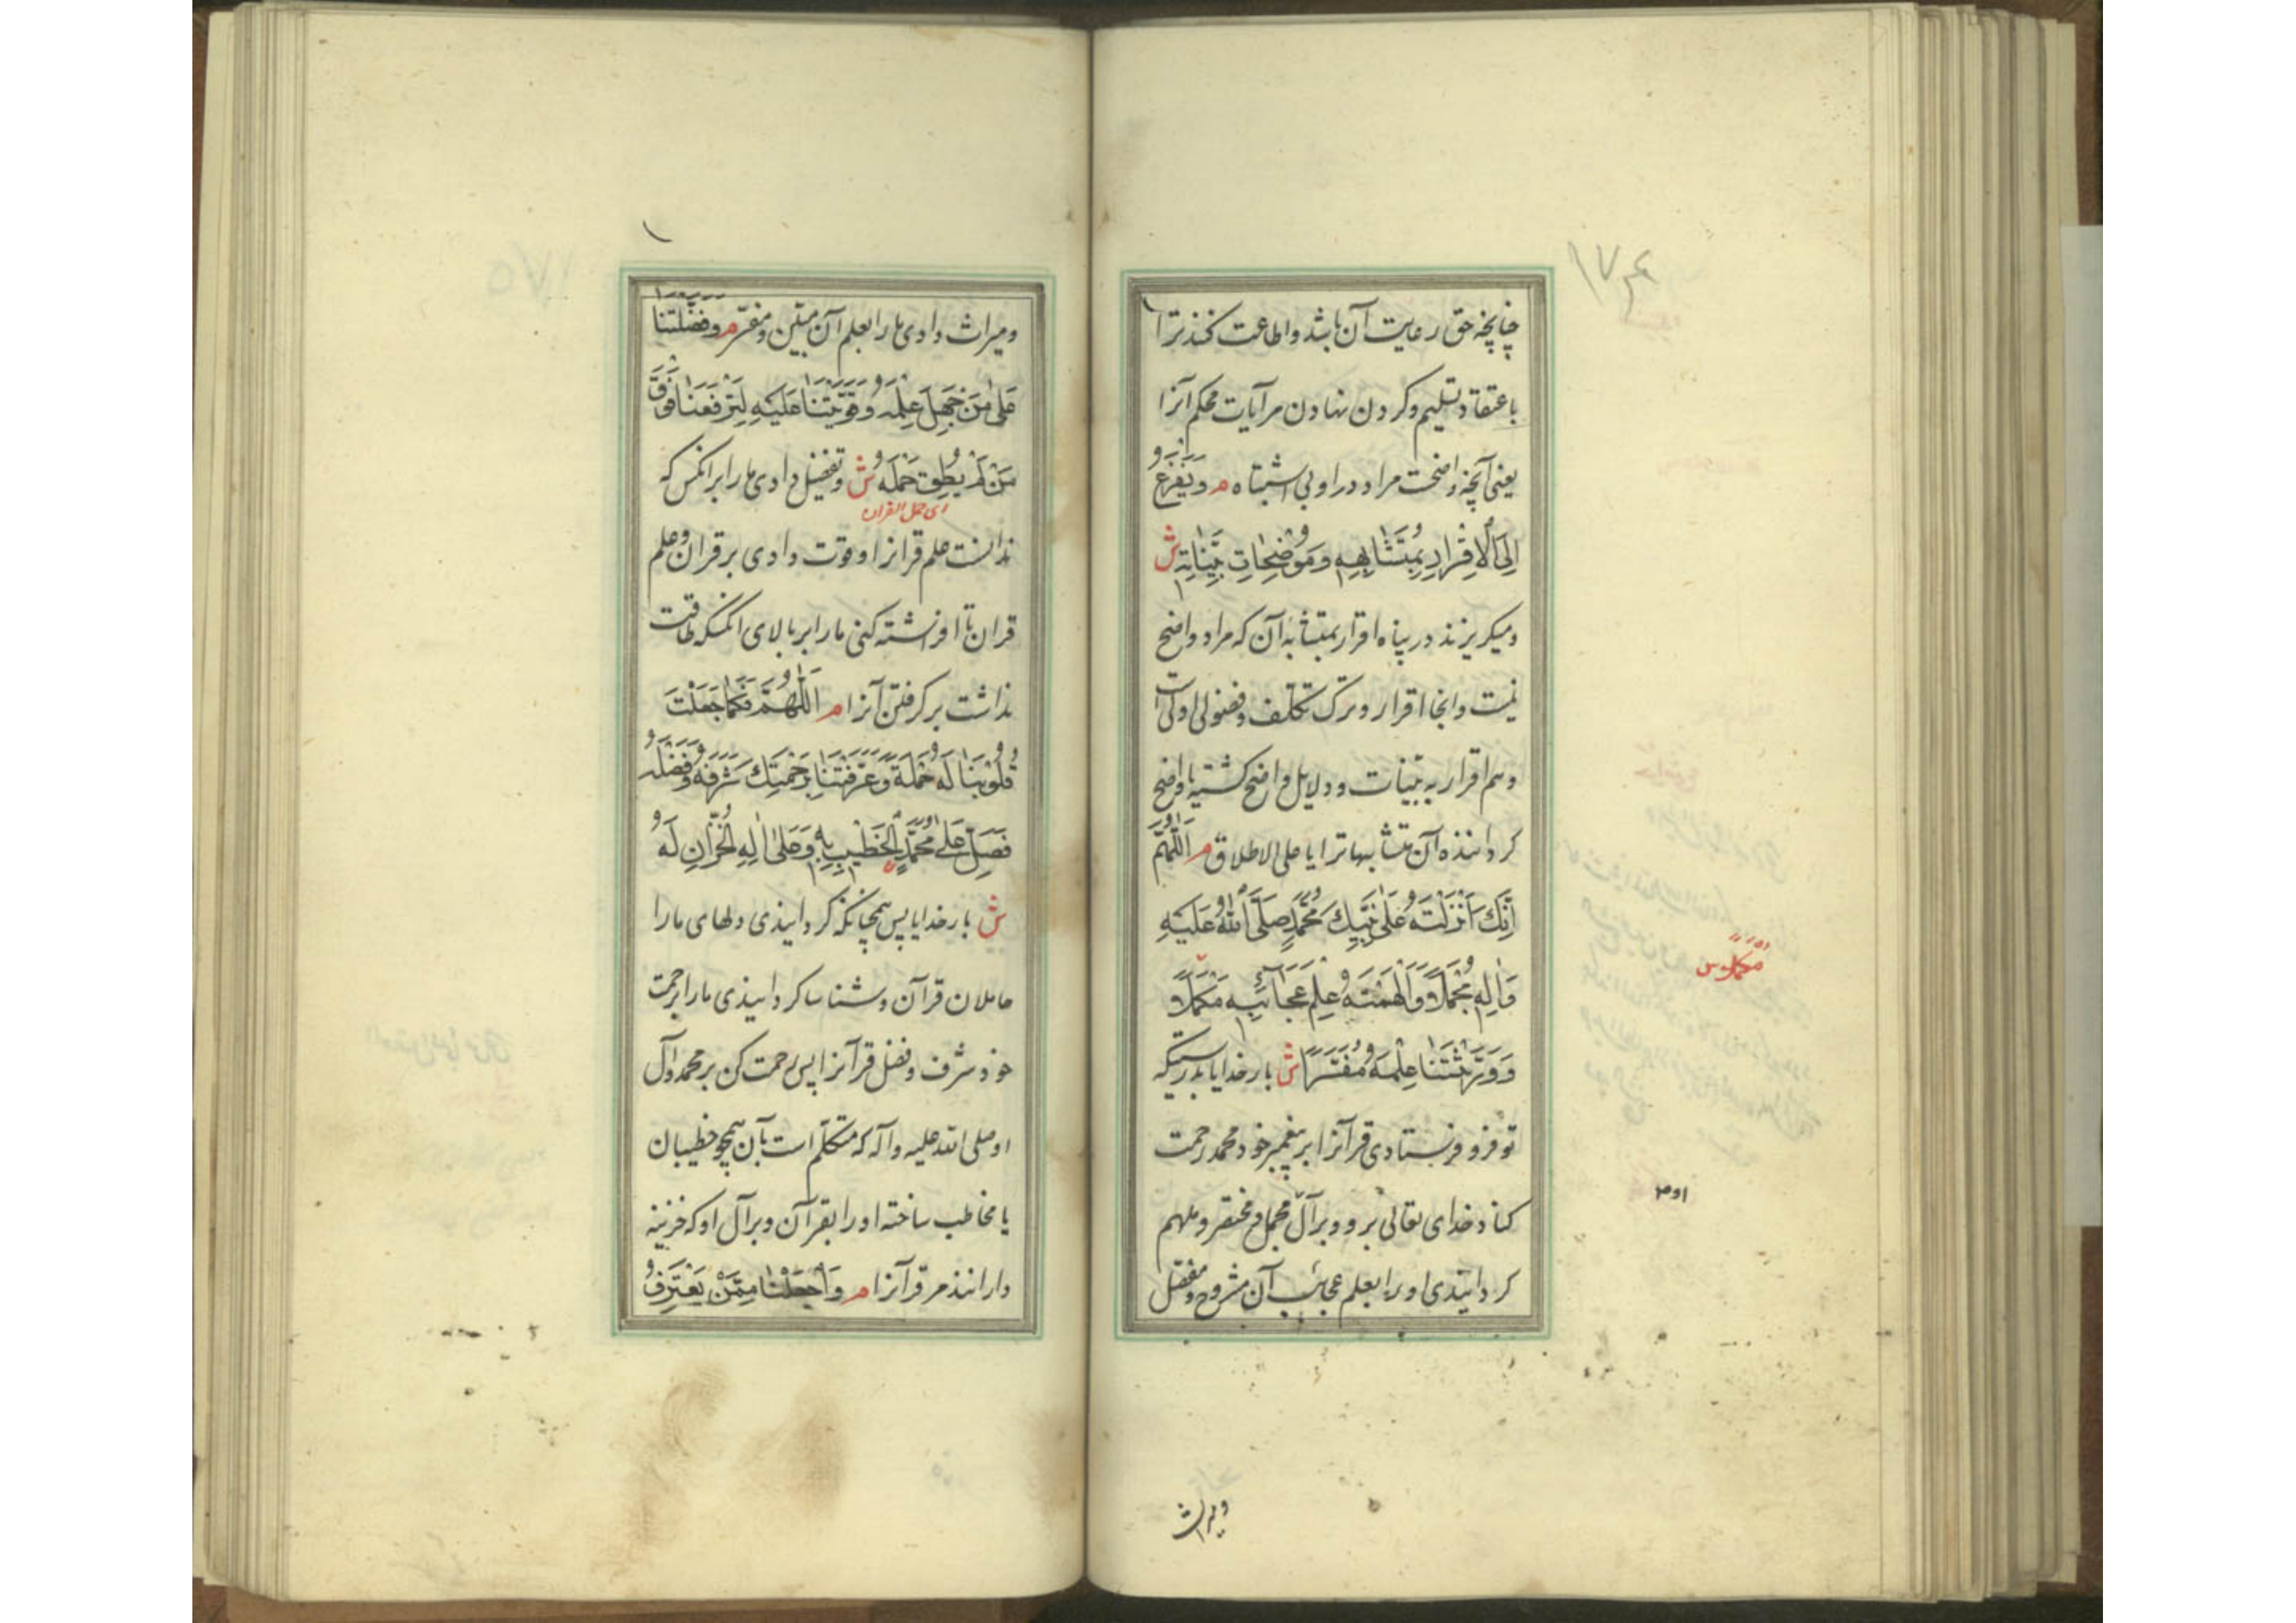 ۱۷۴
چنانچه حق رعایت آن باشد و اطاعت کنند ترا
باعتقاد تسلیم و کردن نهادن مر آیات محکم آنرا
یعنی آنچه واضحست مراد در او بی اشتباه م وَیَفْزَعُ
اِلَی الْاِقْرارِ بِمُتَشابِهِهِ وَمُوضِحاتِ بَیِّناتِهِ ش
و میکریزند در پناه اقرار بمتشابه آن که مراد واضح
نیست و انجا اقرار و ترک تکلف و فضولی اولی است
و هم اقرار به بینات و دلایل واضح کشته یا واضح
کرداننده آن متشابها ترا یا علی الاطلاق م اَللّٰهُمَّ
اِنَّكَ اَنْزَلْتَهُ عَلٰی نَبِیِّكَ مُحَمَّدٍ صَلَّی اللّٰهُ عَلَیْهِ
وَاٰلِهِ مُجْمَلًا وَاَلْهَمْتَهُ عِلْمَ عَجَآئِبِهِ مُكَمَّلًا
وَوَرَّثْتَنا عِلْمَهُ مُفَسَّرًا ش بار خدایا بدرستیکه
تو فرو فرستادی قرآنرا بر پیغمبر خود محمد رحمت
کناد خدای تعالی برو و بر آل مجمل و مختصر و ملهم
کردانیدی او را بعلم عجائب آن مشروح و مفصل
مكملا س
ومیراث
ومیراث دادی ما را بعلم آن مبین و مفسر م وَفَضَّلْتَنا
عَلٰی مَنْ جَهِلَ عِلْمَهُ وَقَوَّیْتَنا عَلَیْهِ لِتَرْفَعَنا فَوْقَ
مَنْ لَمْ یُطِقْ حَمْلَهُ ش و تفضیل دادی ما را بر انکس که
ای حمل القران
ندانست علم قرانرا و قوت دادی بر قران و علم
قران تا افراشته کنی ما را بر بالای انکسکه طاقت
نداشت بر کرفتن آنرا م اَللّٰهُمَّ فَكَما جَعَلْتَ
قُلُوبَنا لَهُ حَمَلَةً وَعَرَّفْتَنا بِرَحْمَتِكَ شَرَفَهُ وَفَضْلَهُ
فَصَلِّ عَلٰی مُحَمَّدٍ الْخَطیبِ بِهِ وَعَلٰی اٰلِهِ الْخُزّانِ لَهُ
ش بار خدایا پس همچنانکه کردانیدی دلهای ما را
حاملان قرآن و شناسا کردانیدی ما را برحمت
خود شرف و فضل قرآنرا پس رحمت کن بر محمد و آل
او صلی الله علیه و آله که متکلم است بآن همچو خطیبان
یا مخاطب ساخته او را بقرآن و بر آل او که خزینه
دارانند مر قرآنرا م وَاجْعَلْنا مِمَّنْ یَعْتَرِفُ